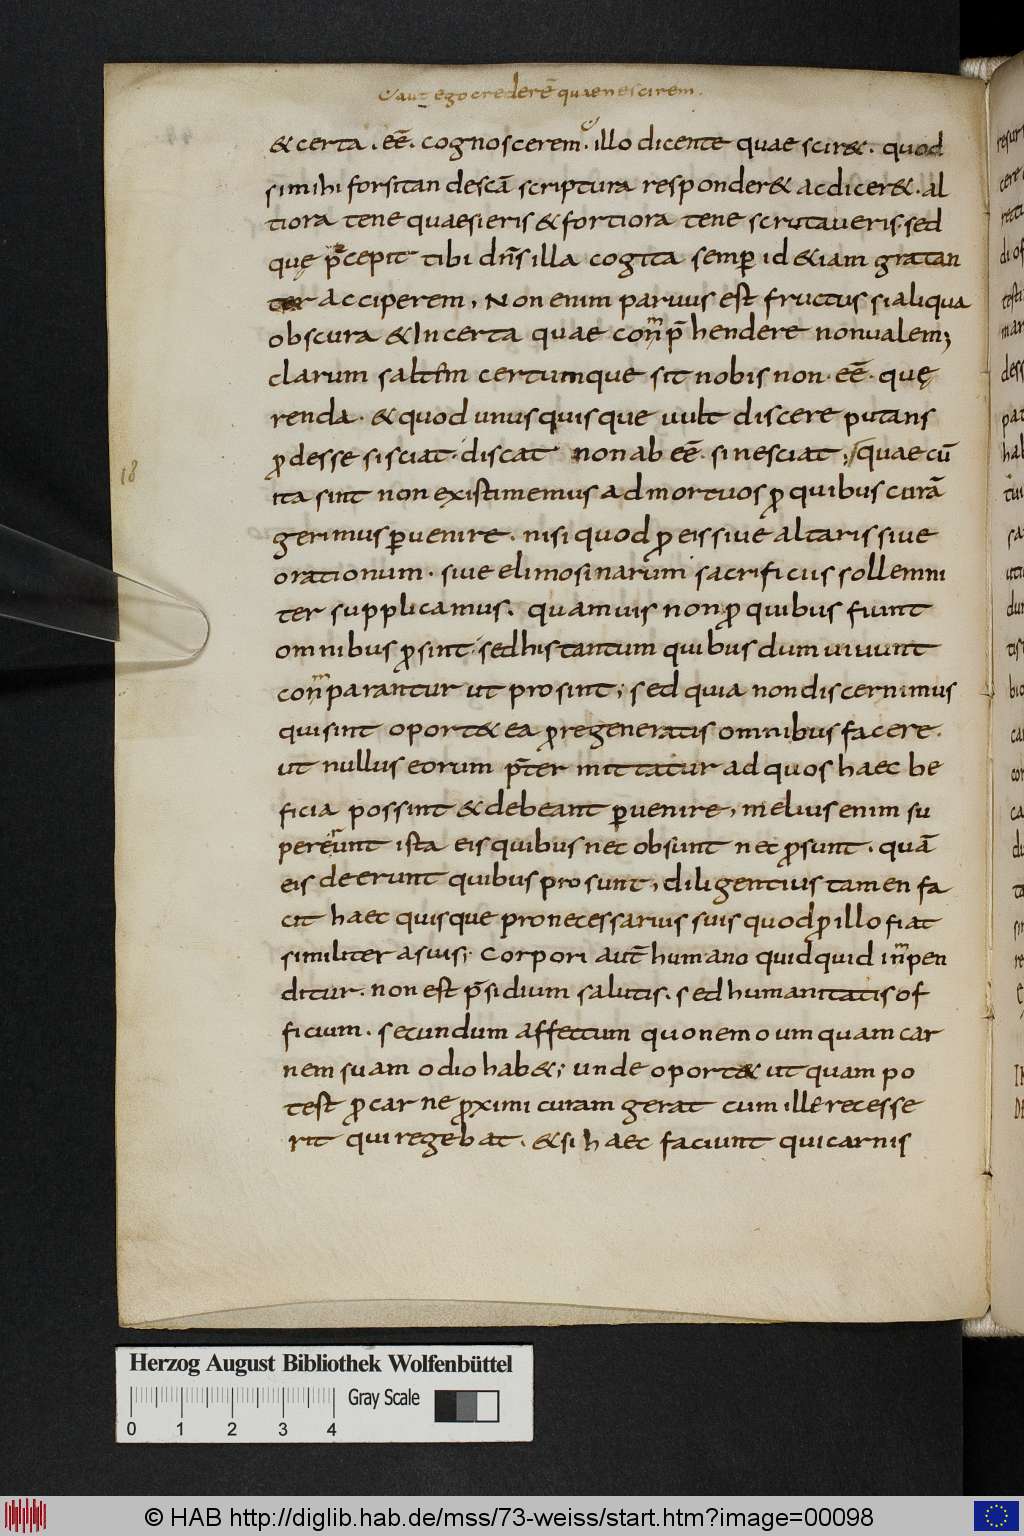 aut ego crederē quae nescirem.
& certa. eē. cognoscerem. illo dicente quae scir&. quod
si mihi forsitan de scā scriptura responder& ac dicer&. al
tiora te ne quaesieris & fortiora te ne scrutaueris. sed
quę p̄cepit tibi dn̄s illa cogita semꝑ id &iam gratan
ter acciperem, Non enim paruus est fructus si aliqua
obscura & Incerta quae conp̄hendere non ualem;
clarum saltim certumque sit nobis non. eē. quę
renda. & quod unus quisque uult discere putans
ꝓdesse si sciat. discat non ab eē. si nesciat; quae cū
ita sint non existimemus ad mortuos ꝓ quibus curā
gerimus ꝑuenire. nisi quod ꝓ eis siue altaris siue
orationum. siue elimosinarum sacrificiis sollemni
ter supplicamus. quamuis non ꝓ quibus fiunt
omnibus ꝓsint. sed his tantum quibus dum uiuunt
conparantur ut prosint; sed quia non discernimus
qui sint oport& ea ꝓ regeneratis omnibus facere.
ut nullus eorum p̄ter mittatur ad quos haec be
ficia possint & debeant ꝑuenire, melius enim su
pererunt ista eis quibus nec obsunt nec ꝓsunt. quā
eis deerunt quibus prosunt, diligentius tamen fa
cit haec quisque pro necessariis suis quod ꝓ illo fiat
similiter a suis; Corpori aut̄ humano quidquid inpen
ditur. non est p̄sidium salutis. sed humanitatis of
ficium. secundum affectum quo nemo umquam car
nem suam odio hab&; unde oport& ut quam po
test ꝓ carne ꝓximi curam gerat cum ille recesse
rit qui regebat. & si haec faciunt qui carnis
18
Herzog August Bibliothek Wolfenbüttel
Gray Scale
0 1 2 3 4
© HAB http://diglib.hab.de/mss/73-weiss/start.htm?image=00098